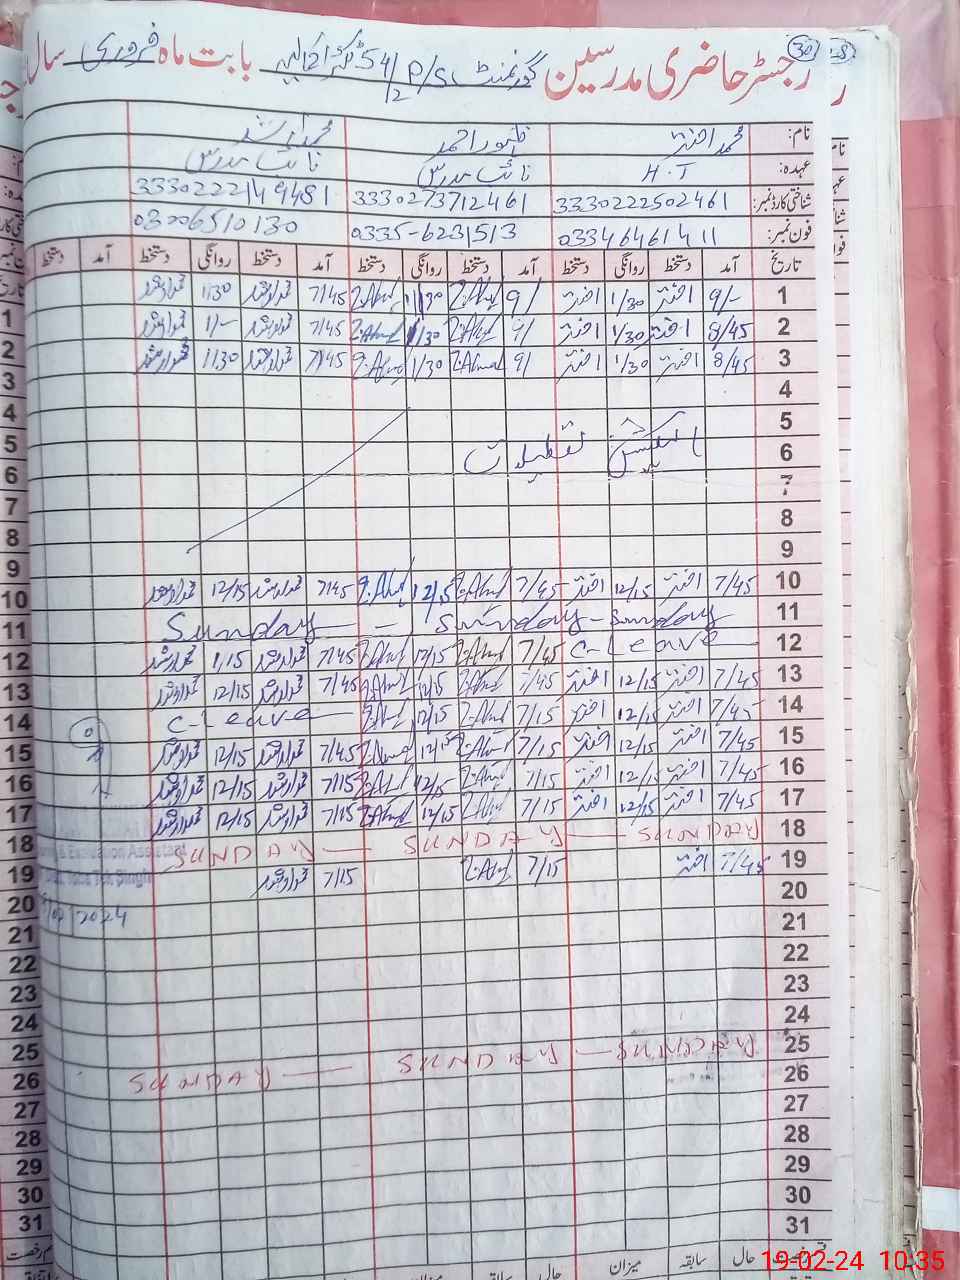 رجسٹر حاضری مدرسین گورنمنٹ P/S 54/2 بابت ماہ فروری سال
30
نام: محمد اختر ظہور احمد محمد ارشد
عہدہ: H.T نائب مدرس نائب مدرس
شناختی کارڈ نمبر: 3330222502461 3330273712461 3330222149481
فون نمبر: 03346461411 0335-6231513 03006510130
تاریخ آمد دستخط روانگی دستخط آمد دستخط روانگی دستخط آمد دستخط روانگی دستخط آمد دستخط
1 9/- اختر 1/30 اختر 9/ Z.Ahmd 1/30 Z.Ahmd 7/45 محمد ارشد 1/30 محمد ارشد
2 8/45 اختر 1/30 اختر 9/ Z.Ahmd 1/30 Z.Ahmd 7/45 محمد ارشد 1/- محمد ارشد
3 8/45 اختر 1/30 اختر 9/ Z.Ahmd 1/30 Z.Ahmd 7/45 محمد ارشد 1/30 محمد ارشد
4
5
6 الیکشن تعطیلات
7
8
9
10 7/45 اختر 12/15 اختر 7/45 Z.Ahmd 12/15 Z.Ahmd 7/45 محمد ارشد 12/15 محمد ارشد
11 Sunday — - Sunday - Sunday
12 C-Leave 7/45 Z.Ahmd 12/15 Z.Ahmd 7/45 محمد ارشد 1/15 محمد ارشد
13 7/45 اختر 12/15 اختر 7/45 Z.Ahmd 12/15 Z.Ahmd 7/45 محمد ارشد 12/15 محمد ارشد
14 7/45 اختر 12/15 اختر 7/15 Z.Ahmd 12/15 Z.Ahmd C-Leave
15 7/45 اختر 12/15 اختر 7/15 Z.Ahmd 12/15 Z.Ahmd 7/45 محمد ارشد 12/15 محمد ارشد
16 7/45 اختر 12/15 اختر 7/15 Z.Ahmd 12/15 Z.Ahmd 7/15 محمد ارشد 12/15 محمد ارشد
17 7/45 اختر 12/15 اختر 7/15 Z.Ahmd 12/15 Z.Ahmd 7/15 محمد ارشد 12/15 محمد ارشد
18 SUNDAY — SUNDAY — SUNDAY
19 7/45 اختر 7/15 Z.Ahmd 7/15 محمد ارشد
& Evaluation Assistant
Toba Tek Singh
/02/2024
20
21
22
23
24
25 SUNDAY — SUNDAY — SUNDAY
26
27
28
29
30
31
رخصت حال سابقہ میزان حال سابقہ میزان
19-02-24 10:35